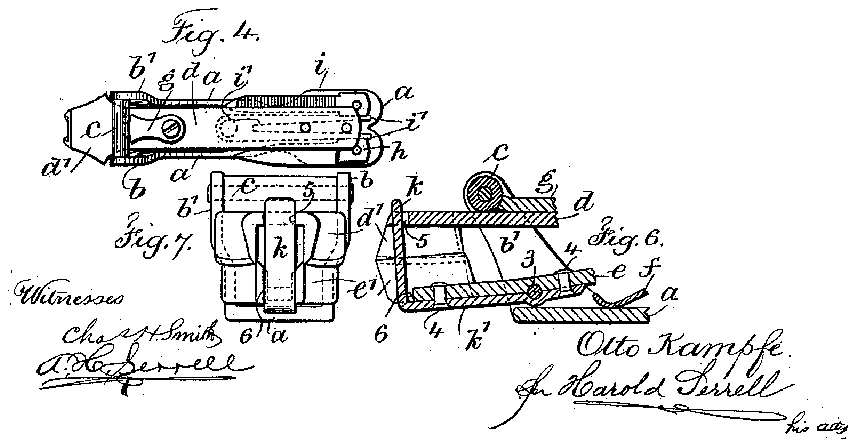 Fig. 4.
b' g d a i' i a
c
d' b a i' h
b' c 5 b
d'
Fig. 7.
k
e'
6 a
c
k g
d
5 b' Fig. 6.
3 4 e f
a
6 4 k'
Witnesses
Chas H Smith
A. H. Serrell
Otto Kampfe.
Harold Serrell
his atty